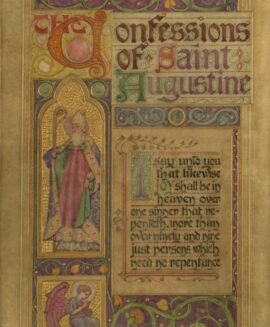 The Confessions
of Saint
Augustine
I say unto you
that likewise
joy shall be in
heaven over
one sinner that re-
penteth, more than
over ninety and nine
just persons which
need no repentance